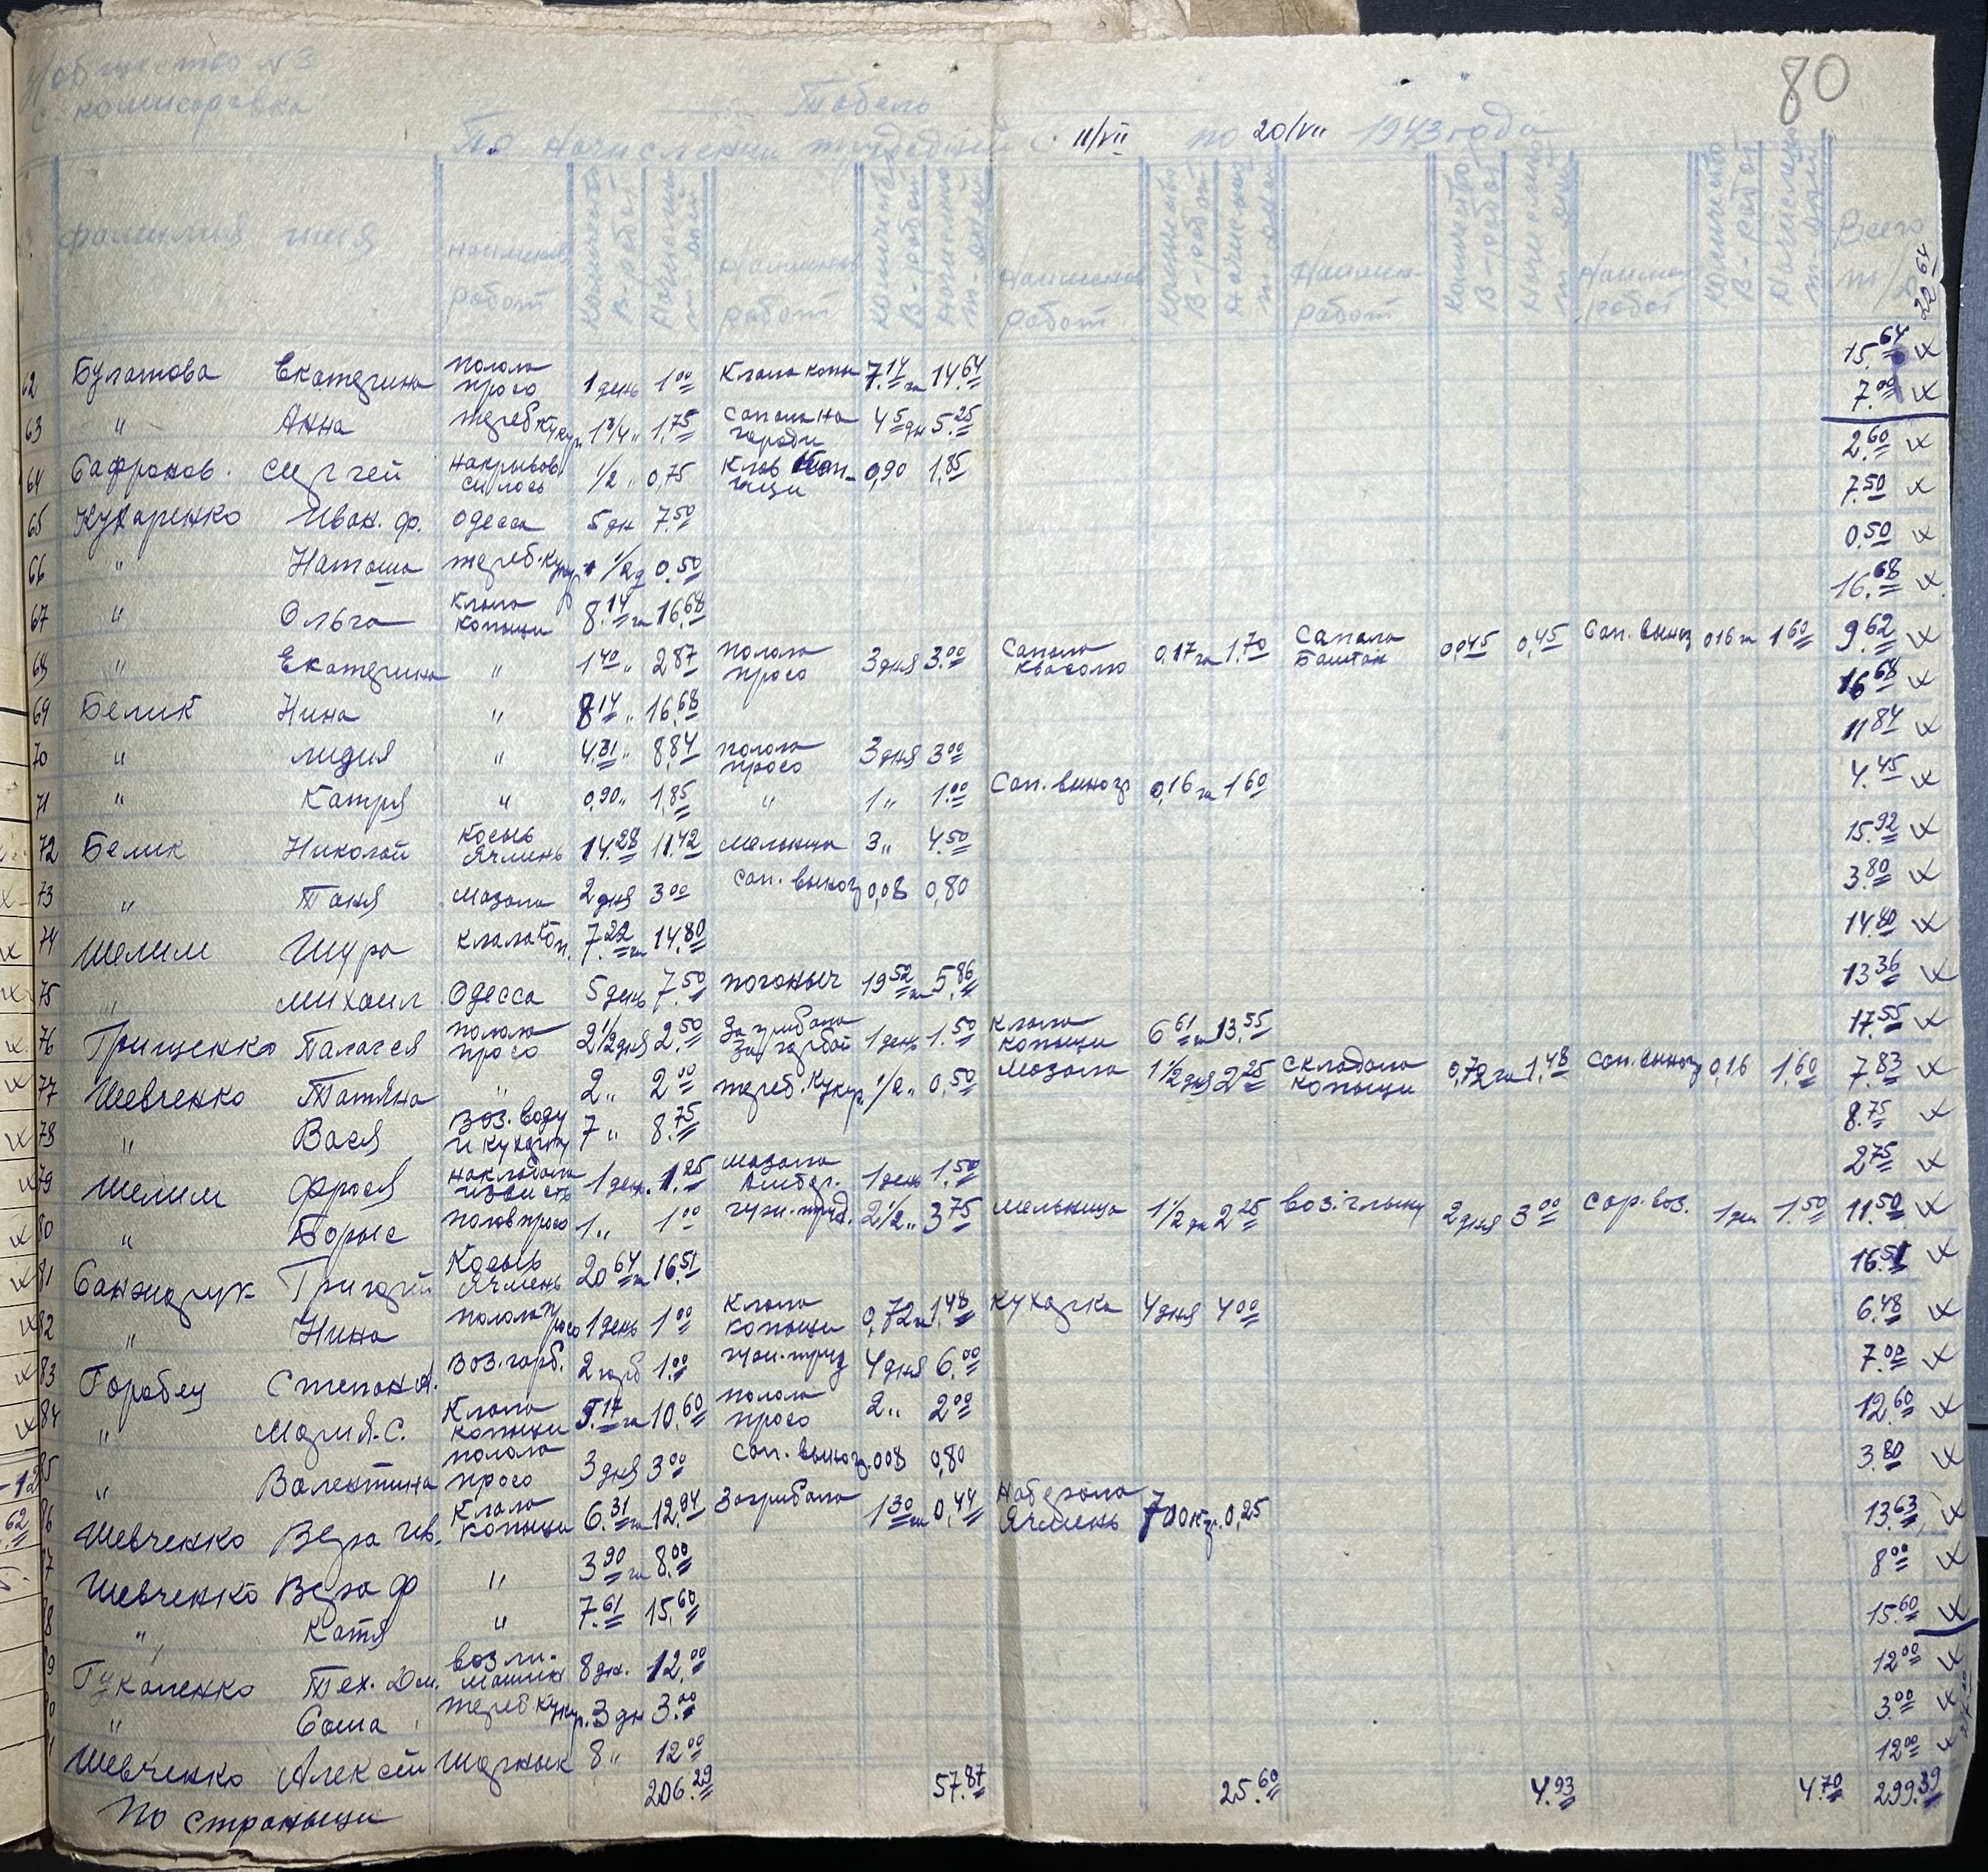 80
у/общество № 3
с. комисаровка
Табель
По начислении трудодней с 11/VII по 20/VII 1943 года
фамилия имя | наимен работ | Количество В-работ | Начислено т-дней | Наименов работ | Количество В-работ | Начислено т-дней | Наименов работ | Количество В-работ | Начислено т-дней | Наимен- работ | Количество В-работ | Начислено т-дней | Наимен работ | Количество В-работ | Начислено т-дней | Всего т/д
22 64
62 Булатова Екатерина полола просо 1 день 1 00 Клала копи 7.14 га 14 64 15.64
63 " Анна тереб кукур. 1 3/4 " 1,75 4 5 дн 5.25 7.00
64 Сафронов. Сергей накрывов. силось 1/2 " 0,75 Клав коп-ыци 0,90 1,85 2.60
65 Кухаренко Иван. ф. Одесса 5 дн 7.50 7.50
66 " Наташа тереб. кукур. 1/2 д 0.50 0.50
67 " Ольга Клала копыци 8.14 га 16.68 16.68
68 " Екатерина " 1 40 " 2 87 полола просо 3 дня 3.00 Сапала квасолю 0,17 га 1.70 Сапала Баштан 0,045 0,45 Сап. виног 0,16 га 1 60 9.62
69 Белик Нина " 8 14 " 16,68 16 68
70 " лидия " 4.31 " 8,84 полола просо 3 дня 3 00 11 84
71 " Катря " 0,90 " 1,85 " 1 " 1.00 Сап. виногр 0,16 га 1 60 4.45
72 Белик Николай Косыв Ячмень 14.28 11.42 мельница 3 " 4.50 15.92
73 " Таня мазала 2 дня 3 00 сап. виногр 0,08 0,80 3.80
74 Шелим Шура клала коп. 7.22 га 14.80 14.80
75 " михаил Одесса 5 день 7.50 погоныч 19 52 га 5,86 13 36
76 Грищенко Палагея полола просо 2 1/2 дня 2.50 Загрибала за гарбой 1 день 1.50 Клала копыци 6 61 га 13.55 17.55
77 Шевченко Татяна " 2 " 2 00 тереб. кукур. 1/2 " 0,50 мазала 1 1/2 дня 2 25 складала копыци 0,72 га 1,48 сап. виног 0,16 1,60 7.83
78 " Вася воз. воду и кухарку 7 " 8.75 8.75
79 Шелим Фрося накладала 1 день. 1.25 мазала Амбар. 1 день 1.50 2 75
80 " Борыс полов просо 1 " 1 00 2 1/2 " 3 75 мельница 1 1/2 дн 2 25 воз. глыну 2 дня 3 00 1 ден 1.50 11.50
81 Санжарук Григорий Косыв Ячмень 20 64 га 16.51 16.51
82 " Нина полола просо 1 день 1 00 Клала копыци 0,72 га 1,48 Кухарка 4 дня 4 00 6.48
83 Горобец Степан А. воз. гарб. 2 гарб 1.00 4 дня 6.00 7.00
84 " Мария. С. Клала копыци 5.17 га 10,60 полола просо 2 " 2 00 12.60
85 " Валентина полола просо 3 дня 3 00 сап. виногр. 0,08 0,80 3.80
86 Шевченко Вера Ив. Клала копыци 6.31 га 12,94 Загрибала 1 30 га 0,44 Наберала Ячмень 700 кг. 0,25 13.63
87 Шевченко Вера Ф " 3 90 га 8.00 8 00
88 " Катя " 7.61 15,60 15.60
89 Гукаленко Тех. Дм. 8 дн. 12,00 12 00
90 " Саша тереб. кукур. 3 дн 3.00 3.00
91 Шевченко Алексей Шорнык 8 " 12 00 12 00
По страныци 206.29 57.87 25.60 4.93 4.70 299.39